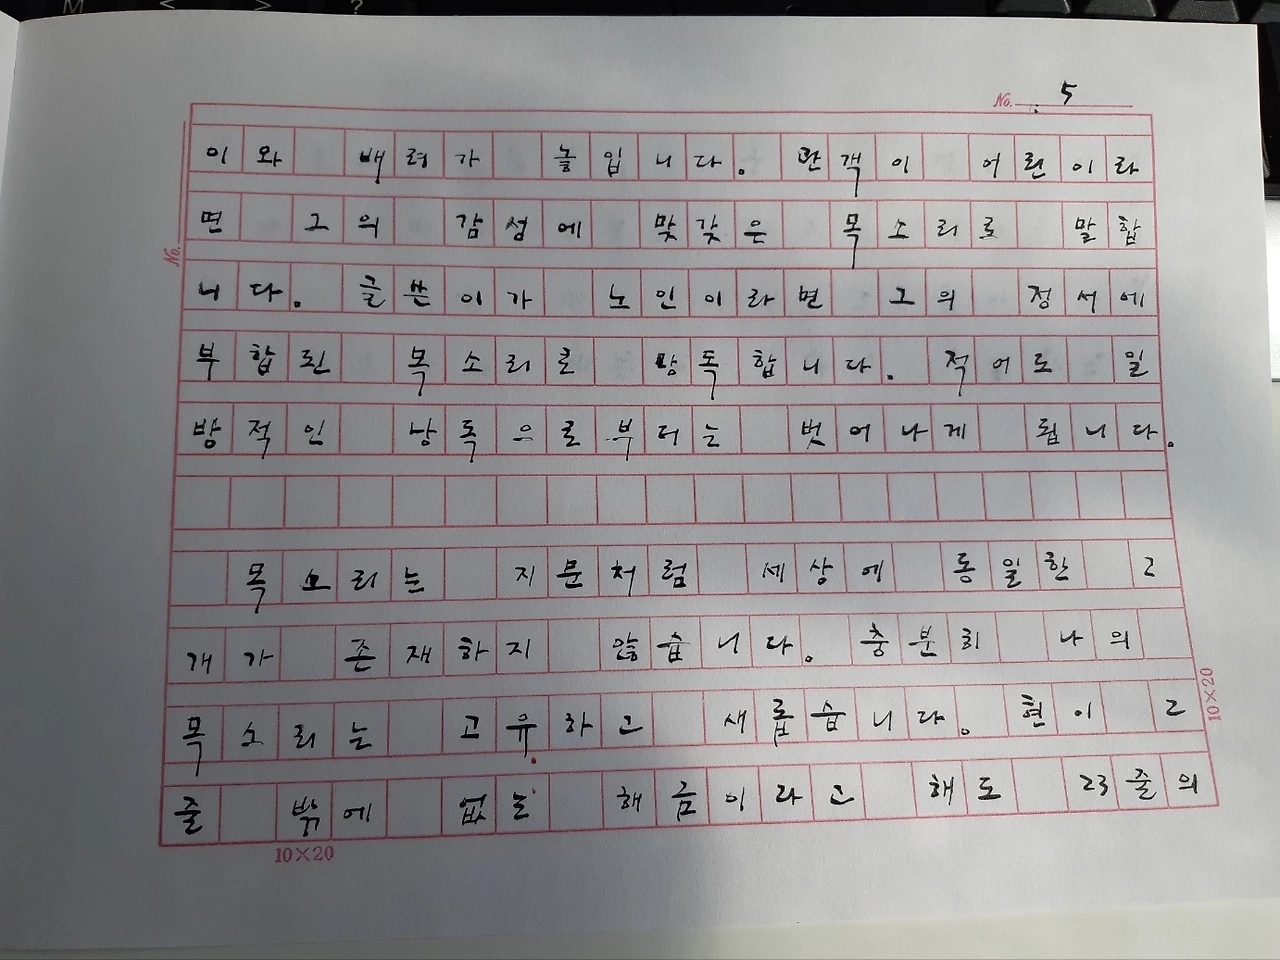 No. 5
이와 배려가 놓입니다. 관객이 어린이라
면 그의 감성에 맞갖은 목소리로 말합
니다. 글쓴이가 노인이라면 그의 정서에
부합된 목소리로 낭독합니다. 적어도 일
방적인 낭독으로부터는 벗어나게 됩니다.
목소리는 지문처럼 세상에 동일한 2
개가 존재하지 않습니다. 충분히 나의
목소리는 고유하고 새롭습니다. 현이 2
줄 밖에 없는 해금이라고 해도 23줄의
10×20
No.
10×20